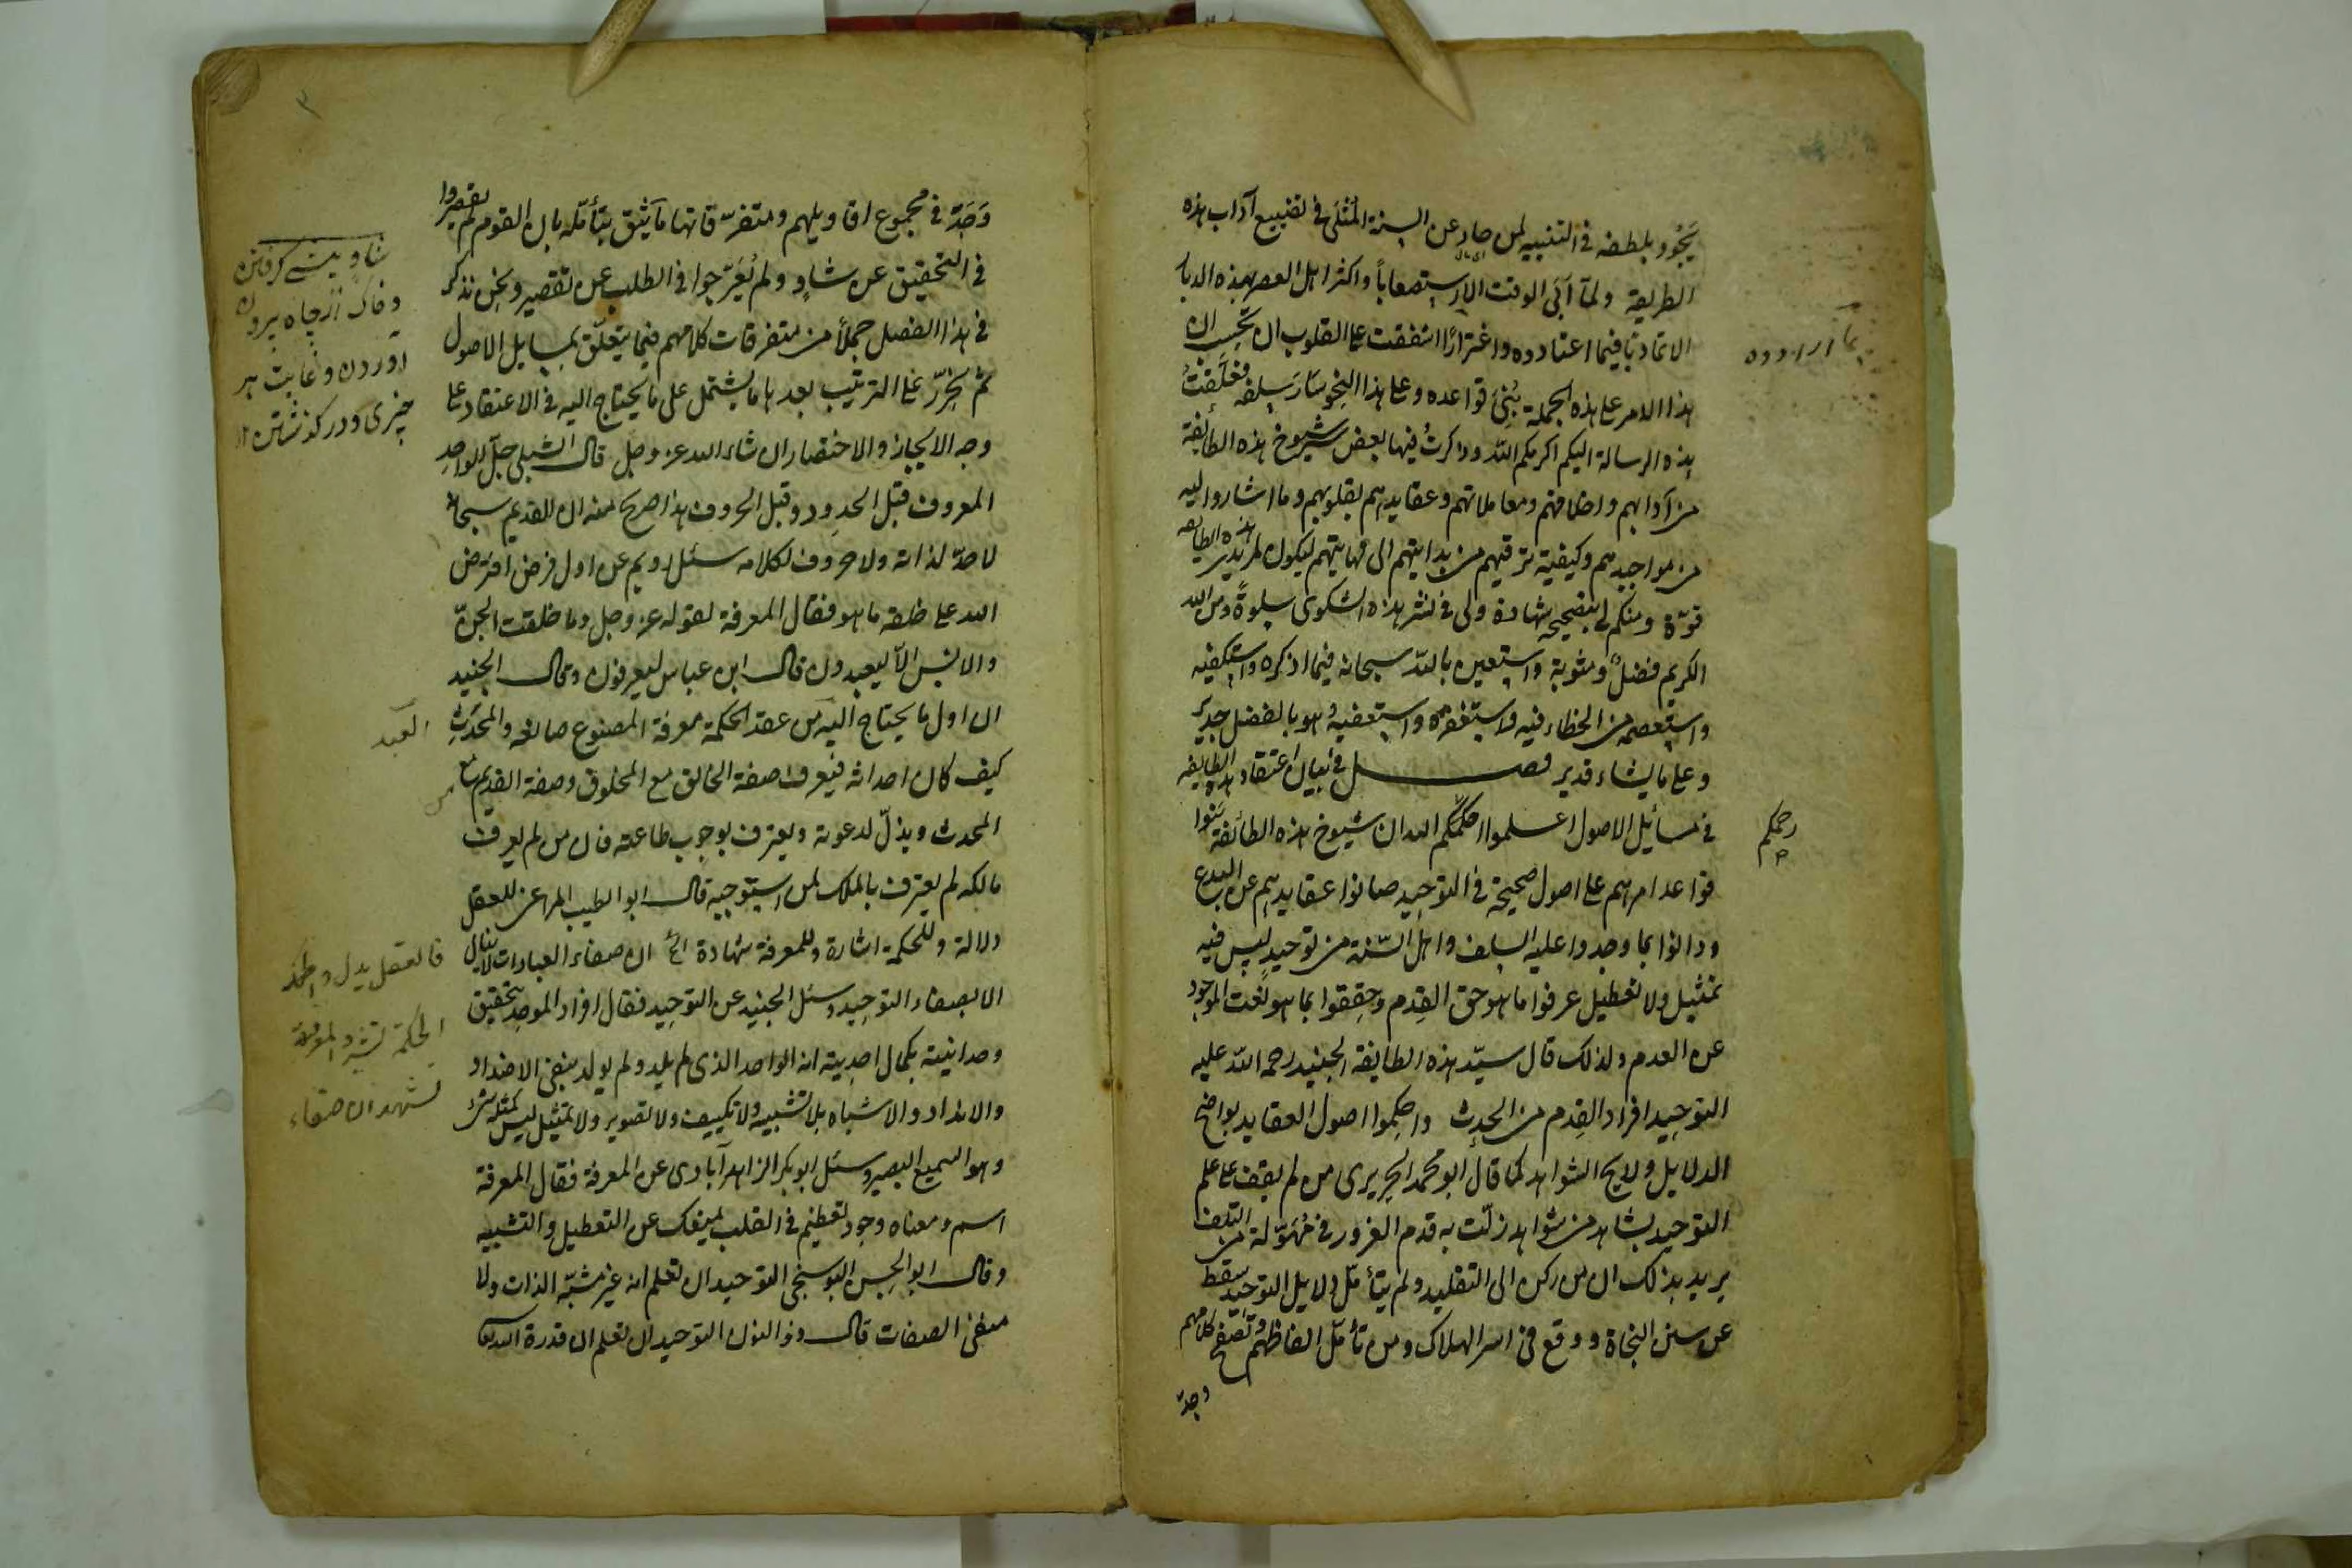 يَجُود بلطفه في التنبيه لمن حاد عن السنة المثلى في تضييع آداب هذه
الطريقة ولما آبى الوقت الا استصعاباً واكثر اهل العصر بهذه الديار
الا تماديًا فيما اعتادوه واغترارًا اشفقت على القلوب ان تحسب ان
هذا الامر على هذه الجملة بُنِيَ قواعده وعلى هذا النحو سَارَ سلفه فعَلَّقتُ
هذه الرسالة اليكم اكرمكم الله وذكرتُ فيها بعض سير شيوخ هذه الطائفة
من آدابهم واخلاقهم ومعاملاتهم وعقايدهم بقلوبهم وما اشاروا اليه
من مواجيدهم وكيفية ترقيهم من بدايتهم الى نهايتهم ليكون لمريدى هذه الطايفه
قوّة ومنكم لى بتصحيحه شهادة ولى في نشر هذه الشكوى سلوةً ومن الله
الكريم فضلٌ ومثوبة واستعين بالله سبحانه فيما اذكره واستكفيه
واستعصمه من الخطاء فيه واستغفره واستعفيهُ وهو بالفضل جدير
وعلى ما يشاء قدير فصل في بيان اعتقاد هذه الطايفه
في مسائل الاصول اعلموا احكمكم الله ان شيوخ هذه الطائفة بَنَوا
رحمكم
قواعد امرهم على اصول صحيحة في التوحيد صانوا عقايدهم عن البدع
ودانوا بما وجدوا عليه السلف واهل السّنة من توحيدٍ ليس فيه
تمثيل ولا تعطيل عرفوا ما هو حق القِدم وحققوا بما هو نعت الموجود
عن العدم ولذلك قال سيّد هذه الطايفة الجنيد رحمة الله عليه
التوحيد افراد القِدم من الحدث واحكموا اصول العقايد بواضح
الدلايل ولايح الشواهد كما قال ابو محمد الجريرى من لم يقف على علم
التوحيد بشاهد من شواهد زلّت به قدم الغرور في مُهَوّلة من التلف
يريد بذلك ان من ركن الى التقليد ولم يتأمّل دلايل التوحيد سقط
عن سنن النجاة ووقع في اسر الهلاك ومن تأمّل الفاظهم وتصفّح كلامهم
وجدَ
وَجَدَ في مجموع اقاويلهم ومتفرّقاتها ما يثق بتأمّله بان القوم لم يقصروا
في التحقيق عن شاوٍ ولم يُعَرّجوا في الطلب عن تقصير ونحن نذكر
في هذا الفصل جملاً من متفرقات كلامهم فيما يتعلّق بمسايل الاصول
ثم نُحَرّر على الترتيب بعدها ما يشتمل على ما يحتاج اليه في الاعتقاد على
وجه الايجاز والاختصار ان شاء الله عز وجل قال الشبلى جلّ الواحد
المعروف قبل الحدود وقبل الحروف هذا صريح منه ان القديم سبحانه
لا حدّ لذاته ولا حروف لكلامه سئل رويم عن اول فرض افترض
الله على خلقه ما هو فقال المعرفة لقوله عز وجل وما خلقت الجنّ
والانس الّا ليعبدون قال ابن عباس ليعرفون وقال الجنيد
ان اول ما يحتاج اليه من عقد الحكمة معرفة المصنوع صانعه والمحدَث
العبد
كيف كان احداثه فيعرف صفة الخالق مع المخلوق وصفة القديم مع
من
المحدث ويذلّ لدعوته ويعترف بوجوب طاعته فان من لم يعرف
مالكه لم يعترف بالملك لمن استوجبه قال ابو الطيب المراغى للعقل
دلالة وللحكمة اشارة وللمعرفة شهادة الخ ان صفاء العبادات لا ينال
الا بصفاء التوحيد وسئل الجنيد عن التوحيد فقال افراد الموحد بتحقيق
وحدانيته بكمال احديته انه الواحد الذى لم يلد ولم يولد بنفى الاضداد
والانداد والاشباه بلا تشبيه ولا تكييف ولا تصوير ولا تمثيل ليس كمثله شىء
وهو السميع البصير وسئل ابو بكر الزاهرآبادى عن المعرفة فقال المعرفة
اسم ومعناه وجود تعظيم في القلب يمنعك عن التعطيل والتشبيه
وقال ابو الحسن البوسنجى التوحيد ان تعلم انه غير مشبّه الذات ولا
منفى الصفات قال ذو النون التوحيد ان تعلم ان قدرة الله تعالى
شاو پيشى كرفتن
وخاك از چاه بيرون
آوردن وغايت هر
چيزى ودر كذشتن
فالعقل يدل
الحكمة تشير والمعرفة
تشهد ان صفاء